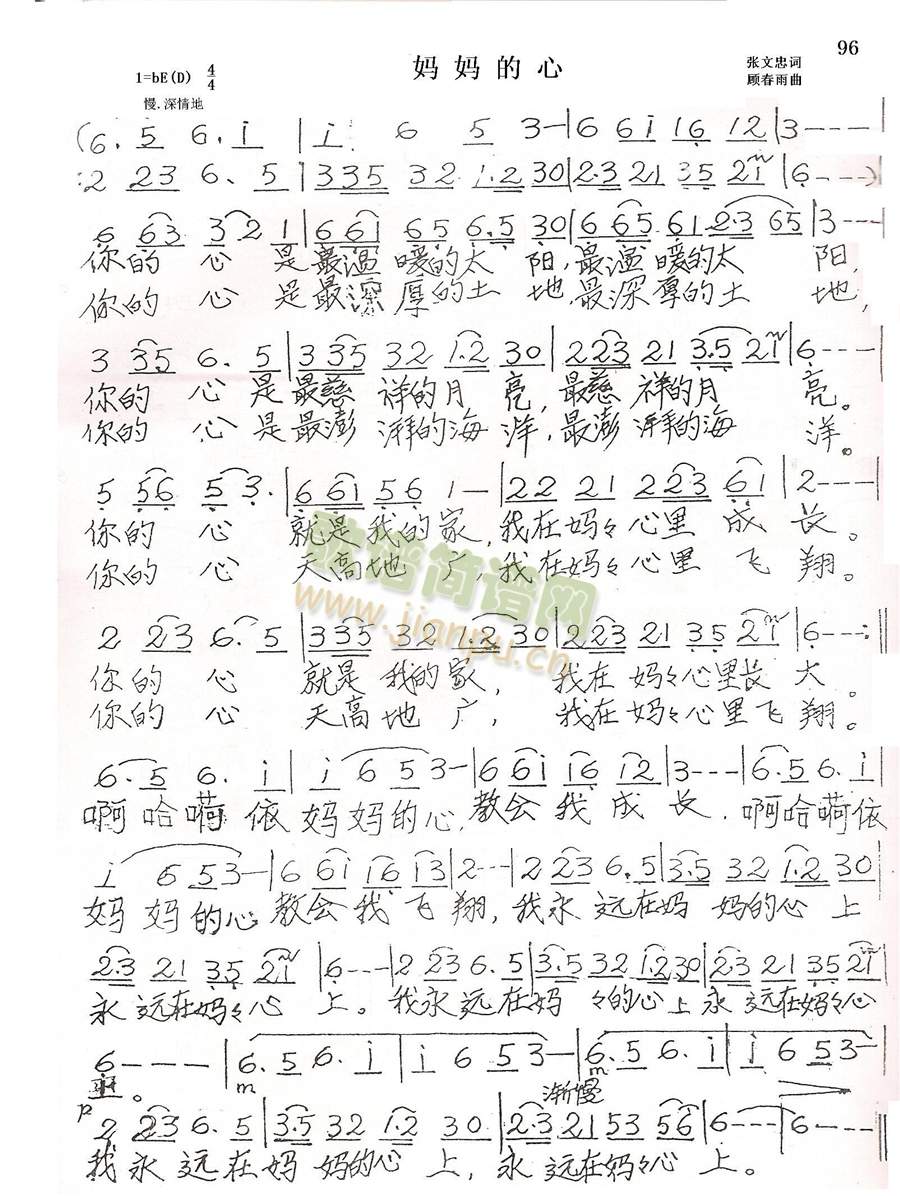 96
妈妈的心
1=bE(D) 4/4
张文忠词
顾春雨曲
慢.深情地
(6. 5 6. i | i 6 5 3— | 6 6i 16 12 | 3---- |
2 23 6. 5 | 3335 32 1.2 30 | 2.3 21 35 21 | 6----)
6 63 3 2 1 | 6 6i 65 6.5 30 | 6 65 61 2.3 65 | 3---- |
你的 心 是最温暖的太 阳,最温暖的太 阳,
你的 心 是最深厚的土 地,最深厚的土 地,
3 35 6. 5 | 3 35 32 1.2 30 | 223 21 3.5 21 | 6---
你的 心 是最慈祥的月 亮,最慈祥的月 亮。
你的 心 是最澎湃的海 洋,最澎湃的海 洋。
5 56 5 3. | 6 61 56 1— | 22 21 223 61 | 2---
你的 心 就是我的家,我在妈々心里 成 长。
你的 心 天高地 广,我在妈々心里 飞 翔。
2 23 6. 5 | 3335 32 1.2 30 | 223 21 35 21 | 6--- :‖
你的 心 就是 我的家, 我在 妈々心里长 大。
你的 心 天高地 广, 我在妈々心里飞 翔。
6. 5 6. i | i 6 53— | 6 6i i6 i2 | 3--- | 6. 5 6. i |
啊哈嗬依妈妈的心,教会我成长.啊哈嗬依
i 6 53— | 6 6i i6 i3 | 2--- | 2 23 6. 5 | 3.5 32 1.2 30
妈妈的心教会我飞翔,我永远在妈妈的心上
2.3 21 3.5 21 | 6--- | 2 23 6. 5 | 3.5 32 1.2 30 | 2.3 21 3.5 21
永远在妈々心 上。我永远在妈々的心上永远在妈々心
6 - - - | 6. 5 6. i | i 6 53— | 6. 5 6. i | i 6 53— |
。 m 渐慢 m
p
2 23 6. 5 | 3.5 32 1.2 30 | 2.3 21 53 56 | 6-- | 6-- ‖
我永远在妈妈的心上,永远在妈々心上。
財譜简谱网
www.jianpu.cn